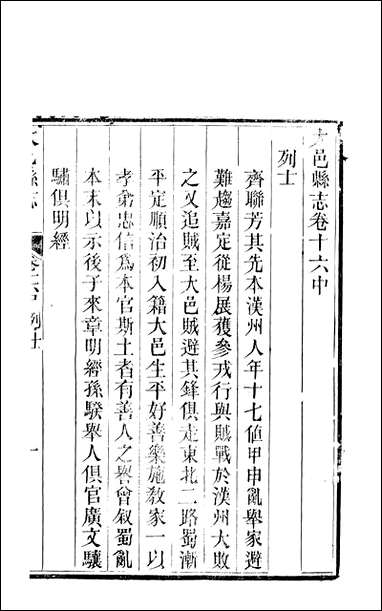 大邑縣志卷十六中
列士
齊聯芳其先本漢州人年十七値甲申亂舉家避
難趨嘉定從楊展獲參戎行與賊戰於漢州大敗
之又追賊至大邑賊避其鋒俱走東北二路蜀漸
平定順治初入籍大邑生平好善樂施敎家一以
孝弟忠信爲本官斯土者有善人之譽曾叙蜀亂
本末以示後子來章明經孫騤舉人俱官廣文驤
驌俱明經
大邑縣志
列士
一